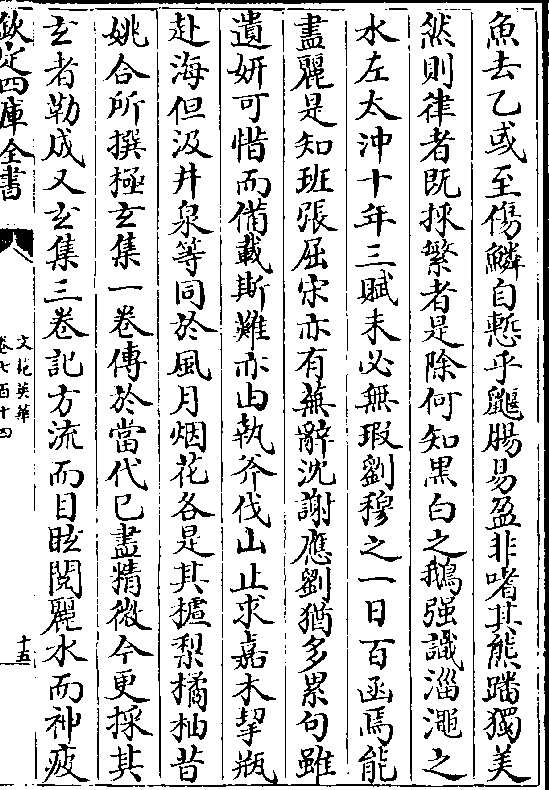 魚去乙或至傷鱗自慙乎鼴腸易盈非嗜其熊蹯獨美
然則律者既採繁者是除何知黑白之鵝强識淄澠之
水左太沖十年三賦未必無瑕劉穆之一日百函焉能
盡麗是知班張屈宋亦有蕪辭沈謝應劉猶多累句雖
遺妍可惜而備載斯難亦由執斧伐山止求嘉木挈瓶
赴海但汲井泉等同於風月烟花各是其樝梨橘柚昔
姚合所撰極玄集一卷傳於當代已盡精微今更採其
玄者勒成又玄集三卷記方流而目眩閱麗水而神疲
欽定四庫全書
文苑英華
卷七百十四
十五